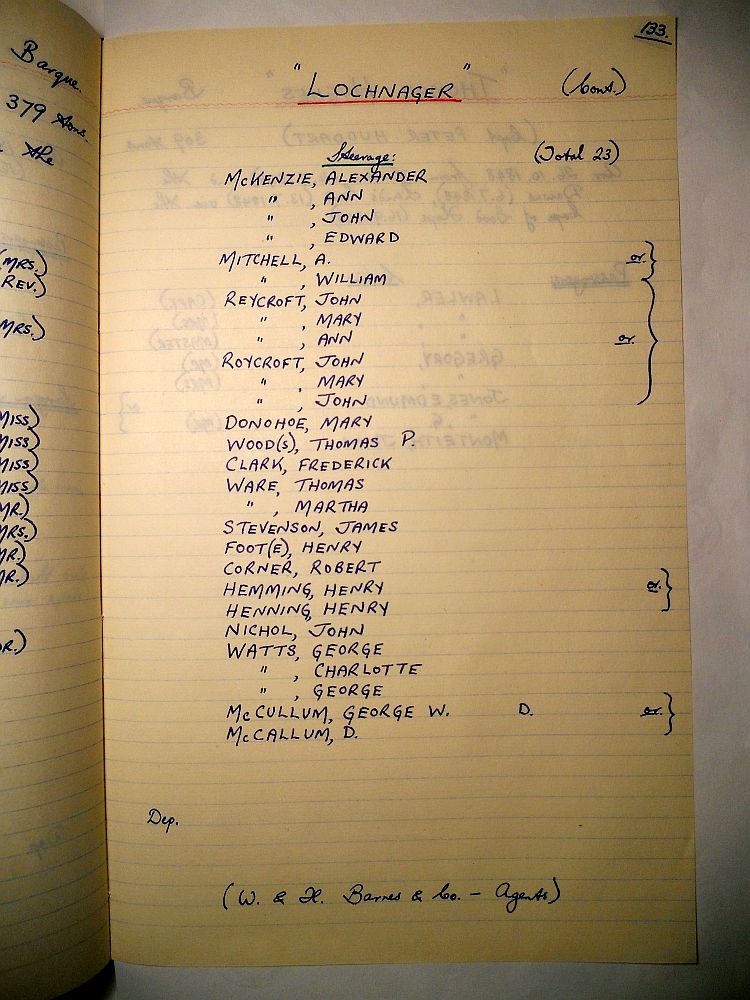 133.
Barque.
379 tons.
the
MRS.)
REV.)
MRS.)
MISS)
MISS)
MISS)
MISS)
MR.)
MRS.)
MR.)
MR.)
"LOCHNAGER" (Cont.)
Steerage: (Total 23)
McKENZIE, ALEXANDER
" , ANN
" , JOHN
" , EDWARD
MITCHELL, A. or
" , WILLIAM
REYCROFT, JOHN
" , MARY
" , ANN or
ROYCROFT, JOHN
" , MARY
" , JOHN
DONOHOE, MARY
WOOD(S), THOMAS P.
CLARK, FREDERICK
WARE, THOMAS
" , MARTHA
STEVENSON, JAMES
FOOT(E), HENRY
CORNER, ROBERT
HEMMING, HENRY or
HENNING, HENRY
NICHOL, JOHN
WATTS, GEORGE
" , CHARLOTTE
" , GEORGE
McCULLUM, GEORGE W. D. or
McCALLUM, D.
Dep.
(W. & H. Barnes & Co. - Agents)